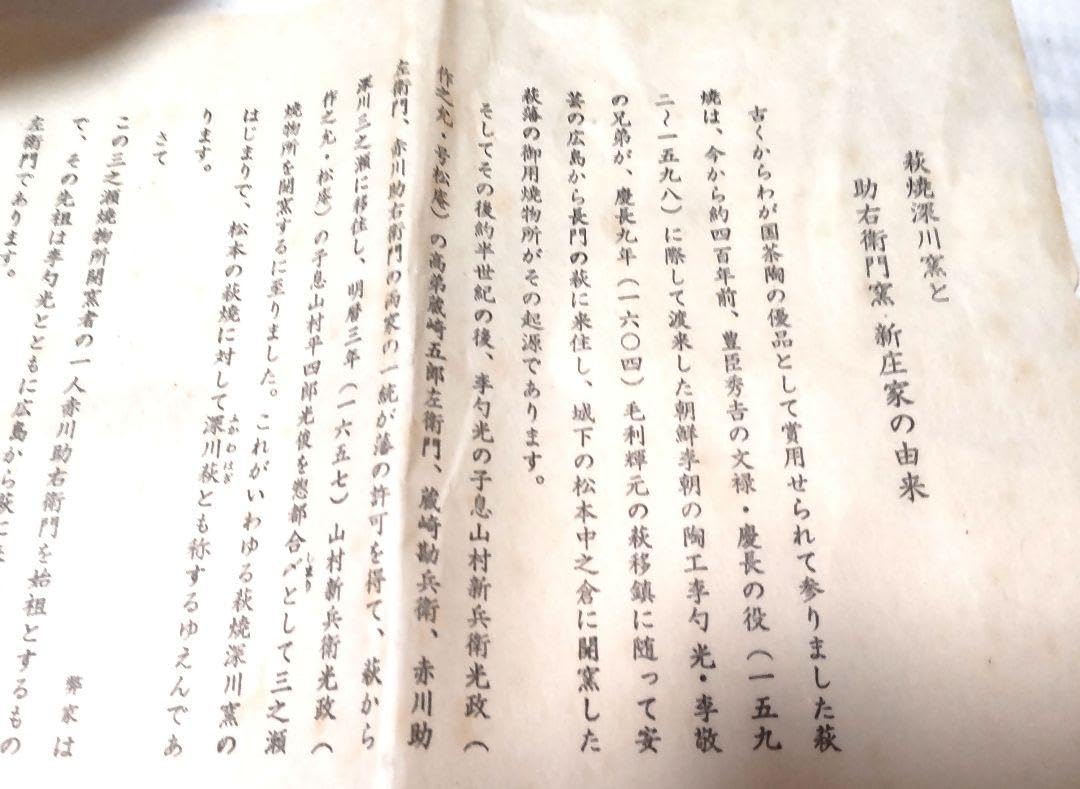 萩焼深川窯と
助右衛門窯 新庄家の由来
古くからわが国茶陶の優品として賞用せられて参りました萩
焼は、今から約四百年前、豊臣秀吉の文禄・慶長の役（一五九
二〜一五九八）に際して渡来した朝鮮李朝の陶工李勺光・李敬
の兄弟が、慶長九年（一六〇四）毛利輝元の萩移鎮に随って安
芸の広島から長門の萩に来住し、城下の松本中之倉に開窯した
萩藩の御用焼物所がその起源であります。
そしてその後約半世紀の後、李勺光の子息山村新兵衛光政（
作之允・号松庵）の高弟蔵崎五郎左衛門、蔵崎勘兵衛、赤川助
左衛門、赤川助右衛門の両家の一統が藩の許可を得て、萩から
深川三之瀬に移住し、明暦三年（一六五七）山村新兵衛光政（
作之允・松庵）の子息山村平四郎光俊を惣都合〆としまりして三之瀬
焼物所を開窯するに至りました。これがいわゆる萩焼深川窯の
はじまりで、松本の萩焼に対して深川萩ふかわはぎとも称するゆえんであ
ります。
さて
弊家は
この三之瀬焼物所開窯者の一人赤川助右衛門を始祖とするもの
で、その先祖は李勺光とともに広島から萩に
左衛門であります。